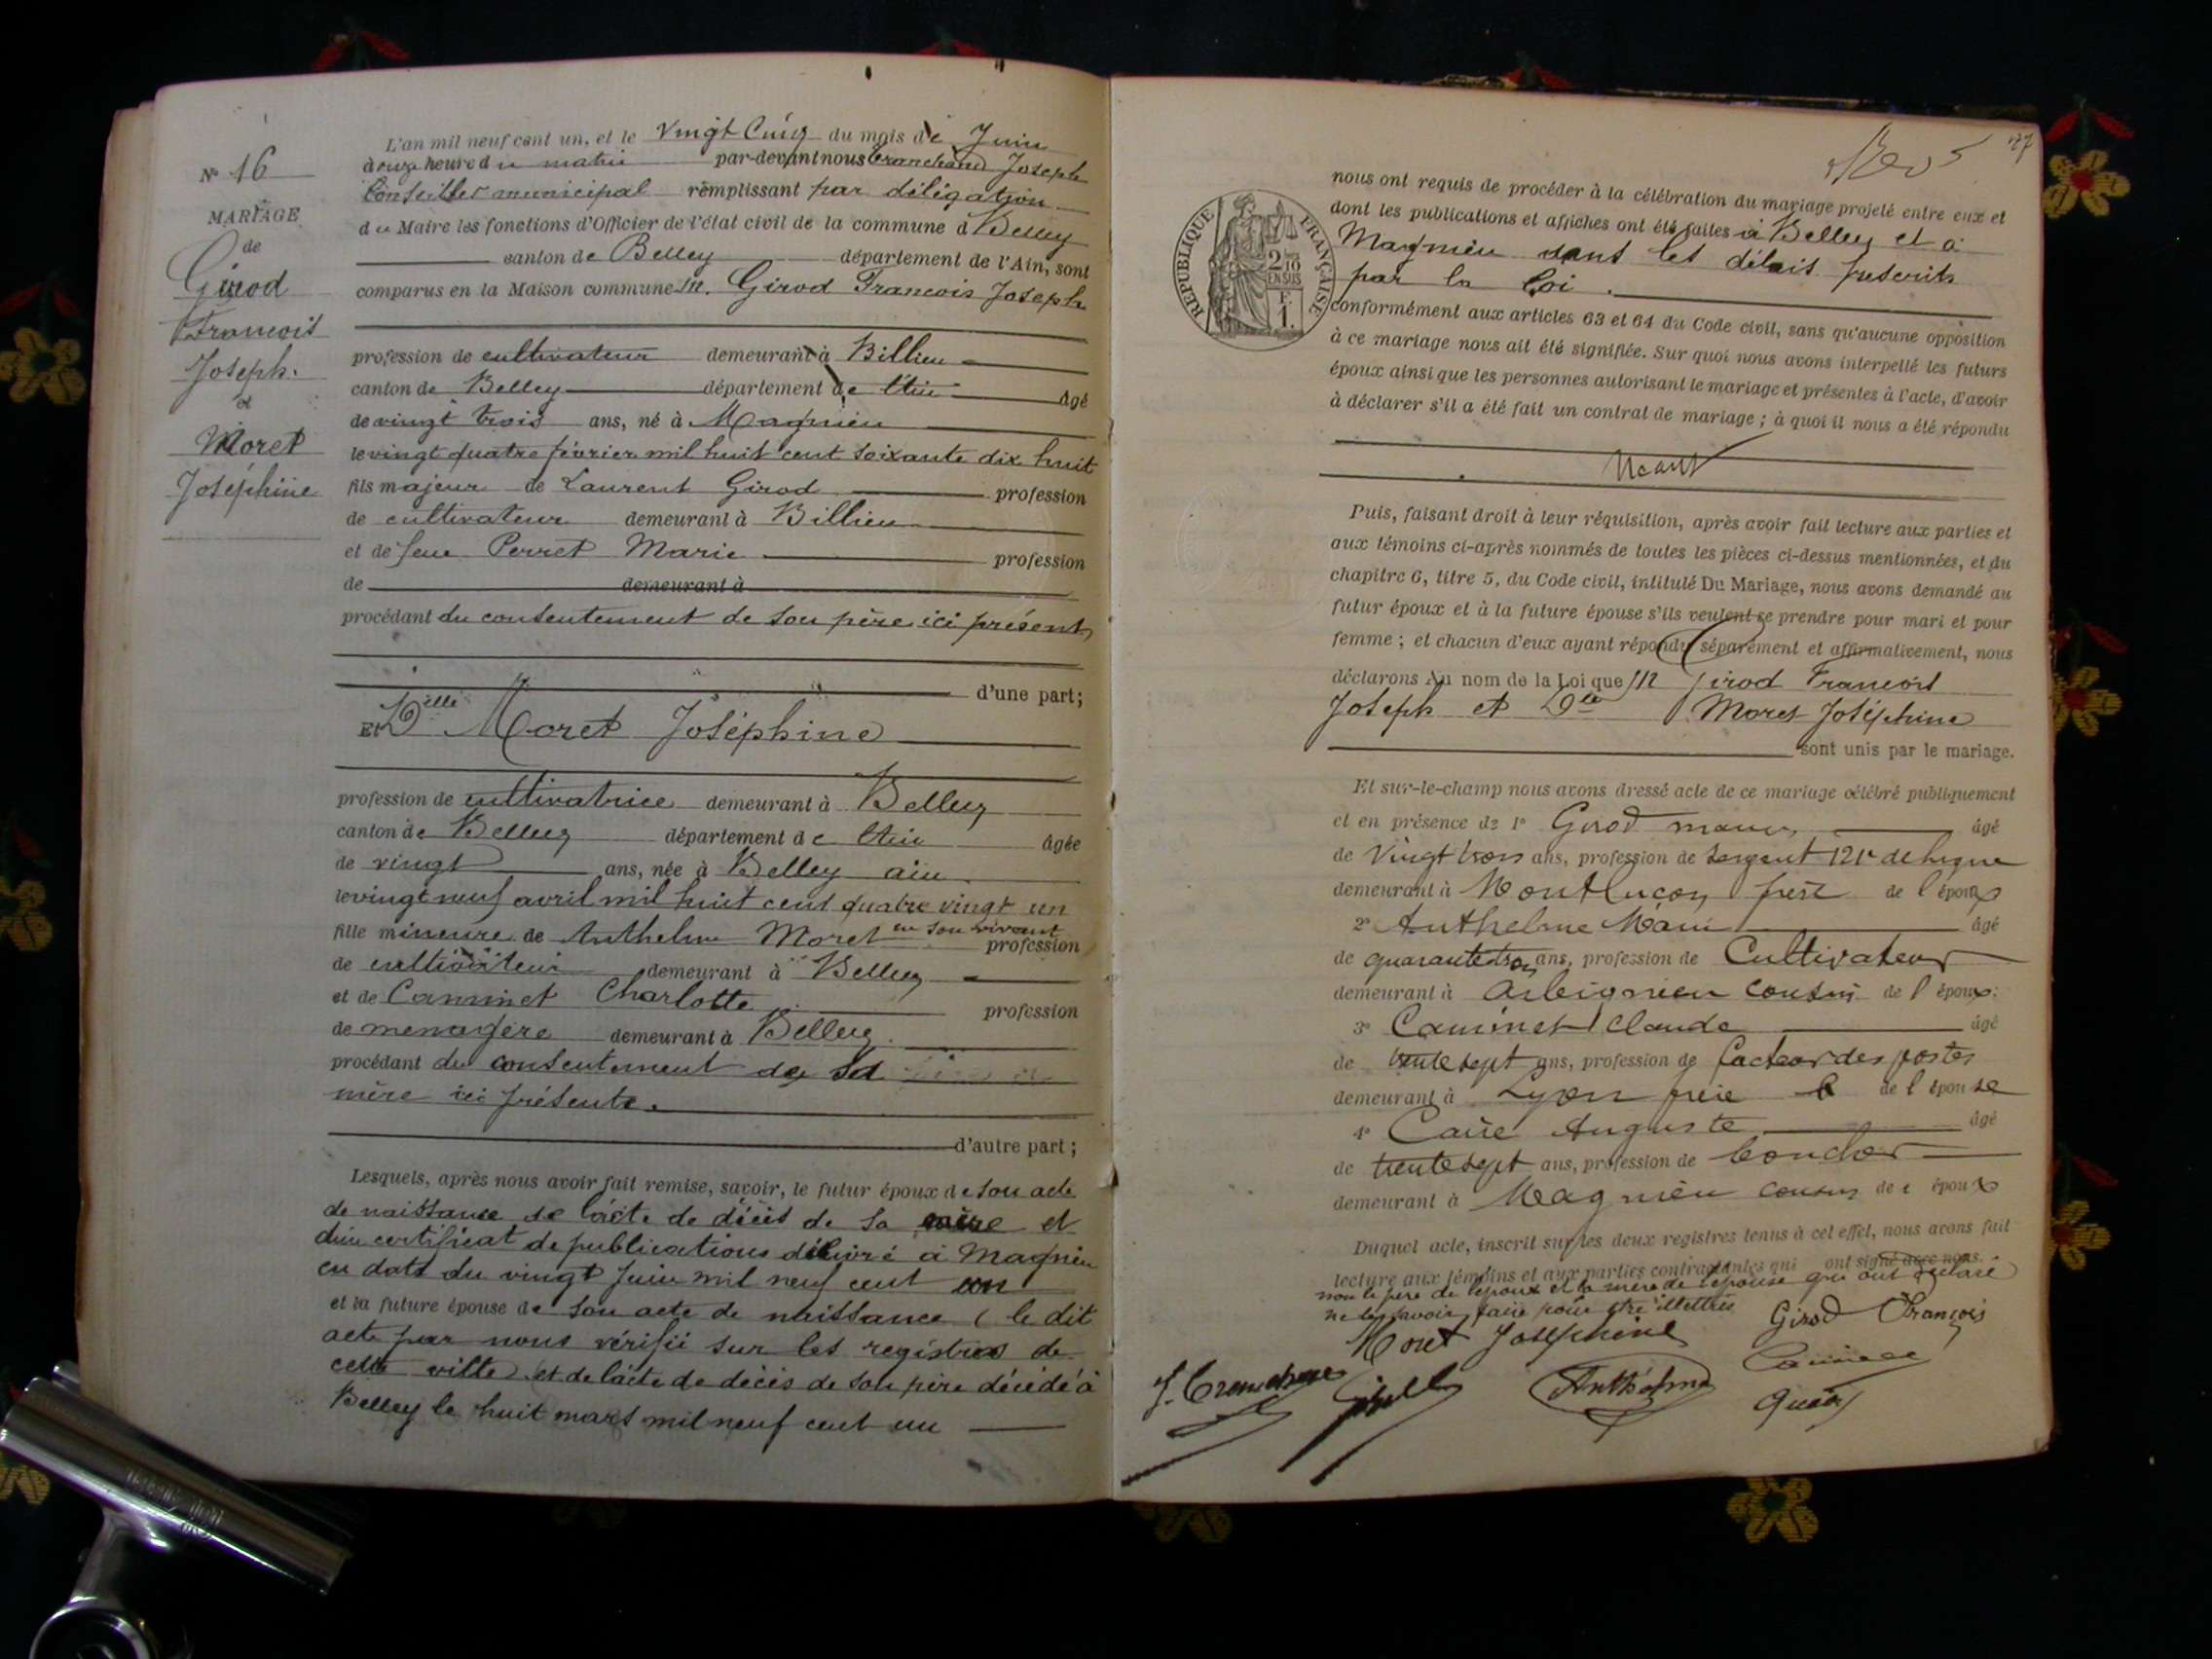 N° 16
MARIAGE
de
Girod
François
Joseph.
et
Moret
Joséphine
L'an mil neuf cent un, et le vingt Cinq du mois de Juin
à onze heure du matin par-devant nous Joseph
Conseiller municipal remplissant par délégation
du Maire les fonctions d'Officier de l'état civil de la commune d Belley
canton de Belley département de l'Ain, sont
comparus en la Maison commune M. Girod Francois Joseph
profession de cultivateur demeurant à Billieu
canton de Belley département de l'Ain âgé
de vingt trois ans, né à Magnieu
le vingt quatre février mil huit cent soixante dix huit
fils majeur de Laurent Girod profession
de cultivateur demeurant à Billieu
et de feue Perret Marie profession
de demeurant à
procédant du consentement de son père ici présent
d'une part;
Et Dlle Moret Joséphine
profession de cultivatrice demeurant à Belley
canton de Belley département de l'Ain âgée
de vingt ans, née à Belley ain
le vingt neuf avril mil huit cent quatre vingt un
fille mineure de Anthelme Moret en son vivant profession
de cultivateur demeurant à Belley
et de Caminet Charlotte profession
de menagère demeurant à Belley
procédant du consentement de sa
mère ici présente.
d'autre part;
Lesquels, après nous avoir fait remise, savoir, le futur époux de son acte
de naissance de l'acte de décès de sa mère et
d'un certificat de publications délivré à Magnieu
en date du vingt Juin mil neuf cent un
et la future épouse de son acte de naissance ( le dit
acte par nous vérifié sur les registres de
cette ville ) et de l'acte de décès de son père décédé à
Belley le huit mars mil neuf cent un
nous ont requis de procéder à la célébration du mariage projeté entre eux et
dont les publications et affiches ont été faites à Belley et à
Magnieu dans les délais prescrits
par la Loi.
RÉPUBLIQUE FRANÇAISE
2/10
EN SUS
F.
1.
conformément aux articles 63 et 64 du Code civil, sans qu'aucune opposition
à ce mariage nous ait été signifiée. Sur quoi nous avons interpellé les futurs
époux ainsi que les personnes autorisant le mariage et présentes à l'acte, d'avoir
à déclarer s'il a été fait un contrat de mariage ; à quoi il nous a été répondu
Néant
Puis, faisant droit à leur réquisition, après avoir fait lecture aux parties et
aux témoins ci-après nommés de toutes les pièces ci-dessus mentionnées, et du
chapitre 6, titre 5, du Code civil, intitulé Du Mariage, nous avons demandé au
futur époux et à la future épouse s'ils veulent se prendre pour mari et pour
femme ; et chacun d'eux ayant répondu séparément et affirmativement, nous
déclarons Au nom de la Loi que M Girod Francois
Joseph et Dlle Moret Joséphine
sont unis par le mariage.
Et sur-le-champ nous avons dressé acte de ce mariage célébré publiquement
et en présence de 1° Girod âgé
de vingt trois ans, profession de sergent 121e de ligne
demeurant à Montlucon frère de l'époux
2° Anthelme âgé
de quarante trois ans, profession de Cultivateur
demeurant à Arbignieu cousin de l'époux
3° Caminet Claude âgé
de trente sept ans, profession de facteur des postes
demeurant à Lyon de l'épouse
4° Auguste âgé
de trente sept ans, profession de
demeurant à Magnieu cousin de l époux
Duquel acte, inscrit sur les deux registres tenus à cet effet, nous avons fait
lecture aux témoins et aux parties contractantes qui ont signé avec nous.
non le père de l'époux et la mère de l'épouse qui ont déclaré
ne le savoir faire pour être illettrés
Moret Joséphine
Girod François
Anthelme